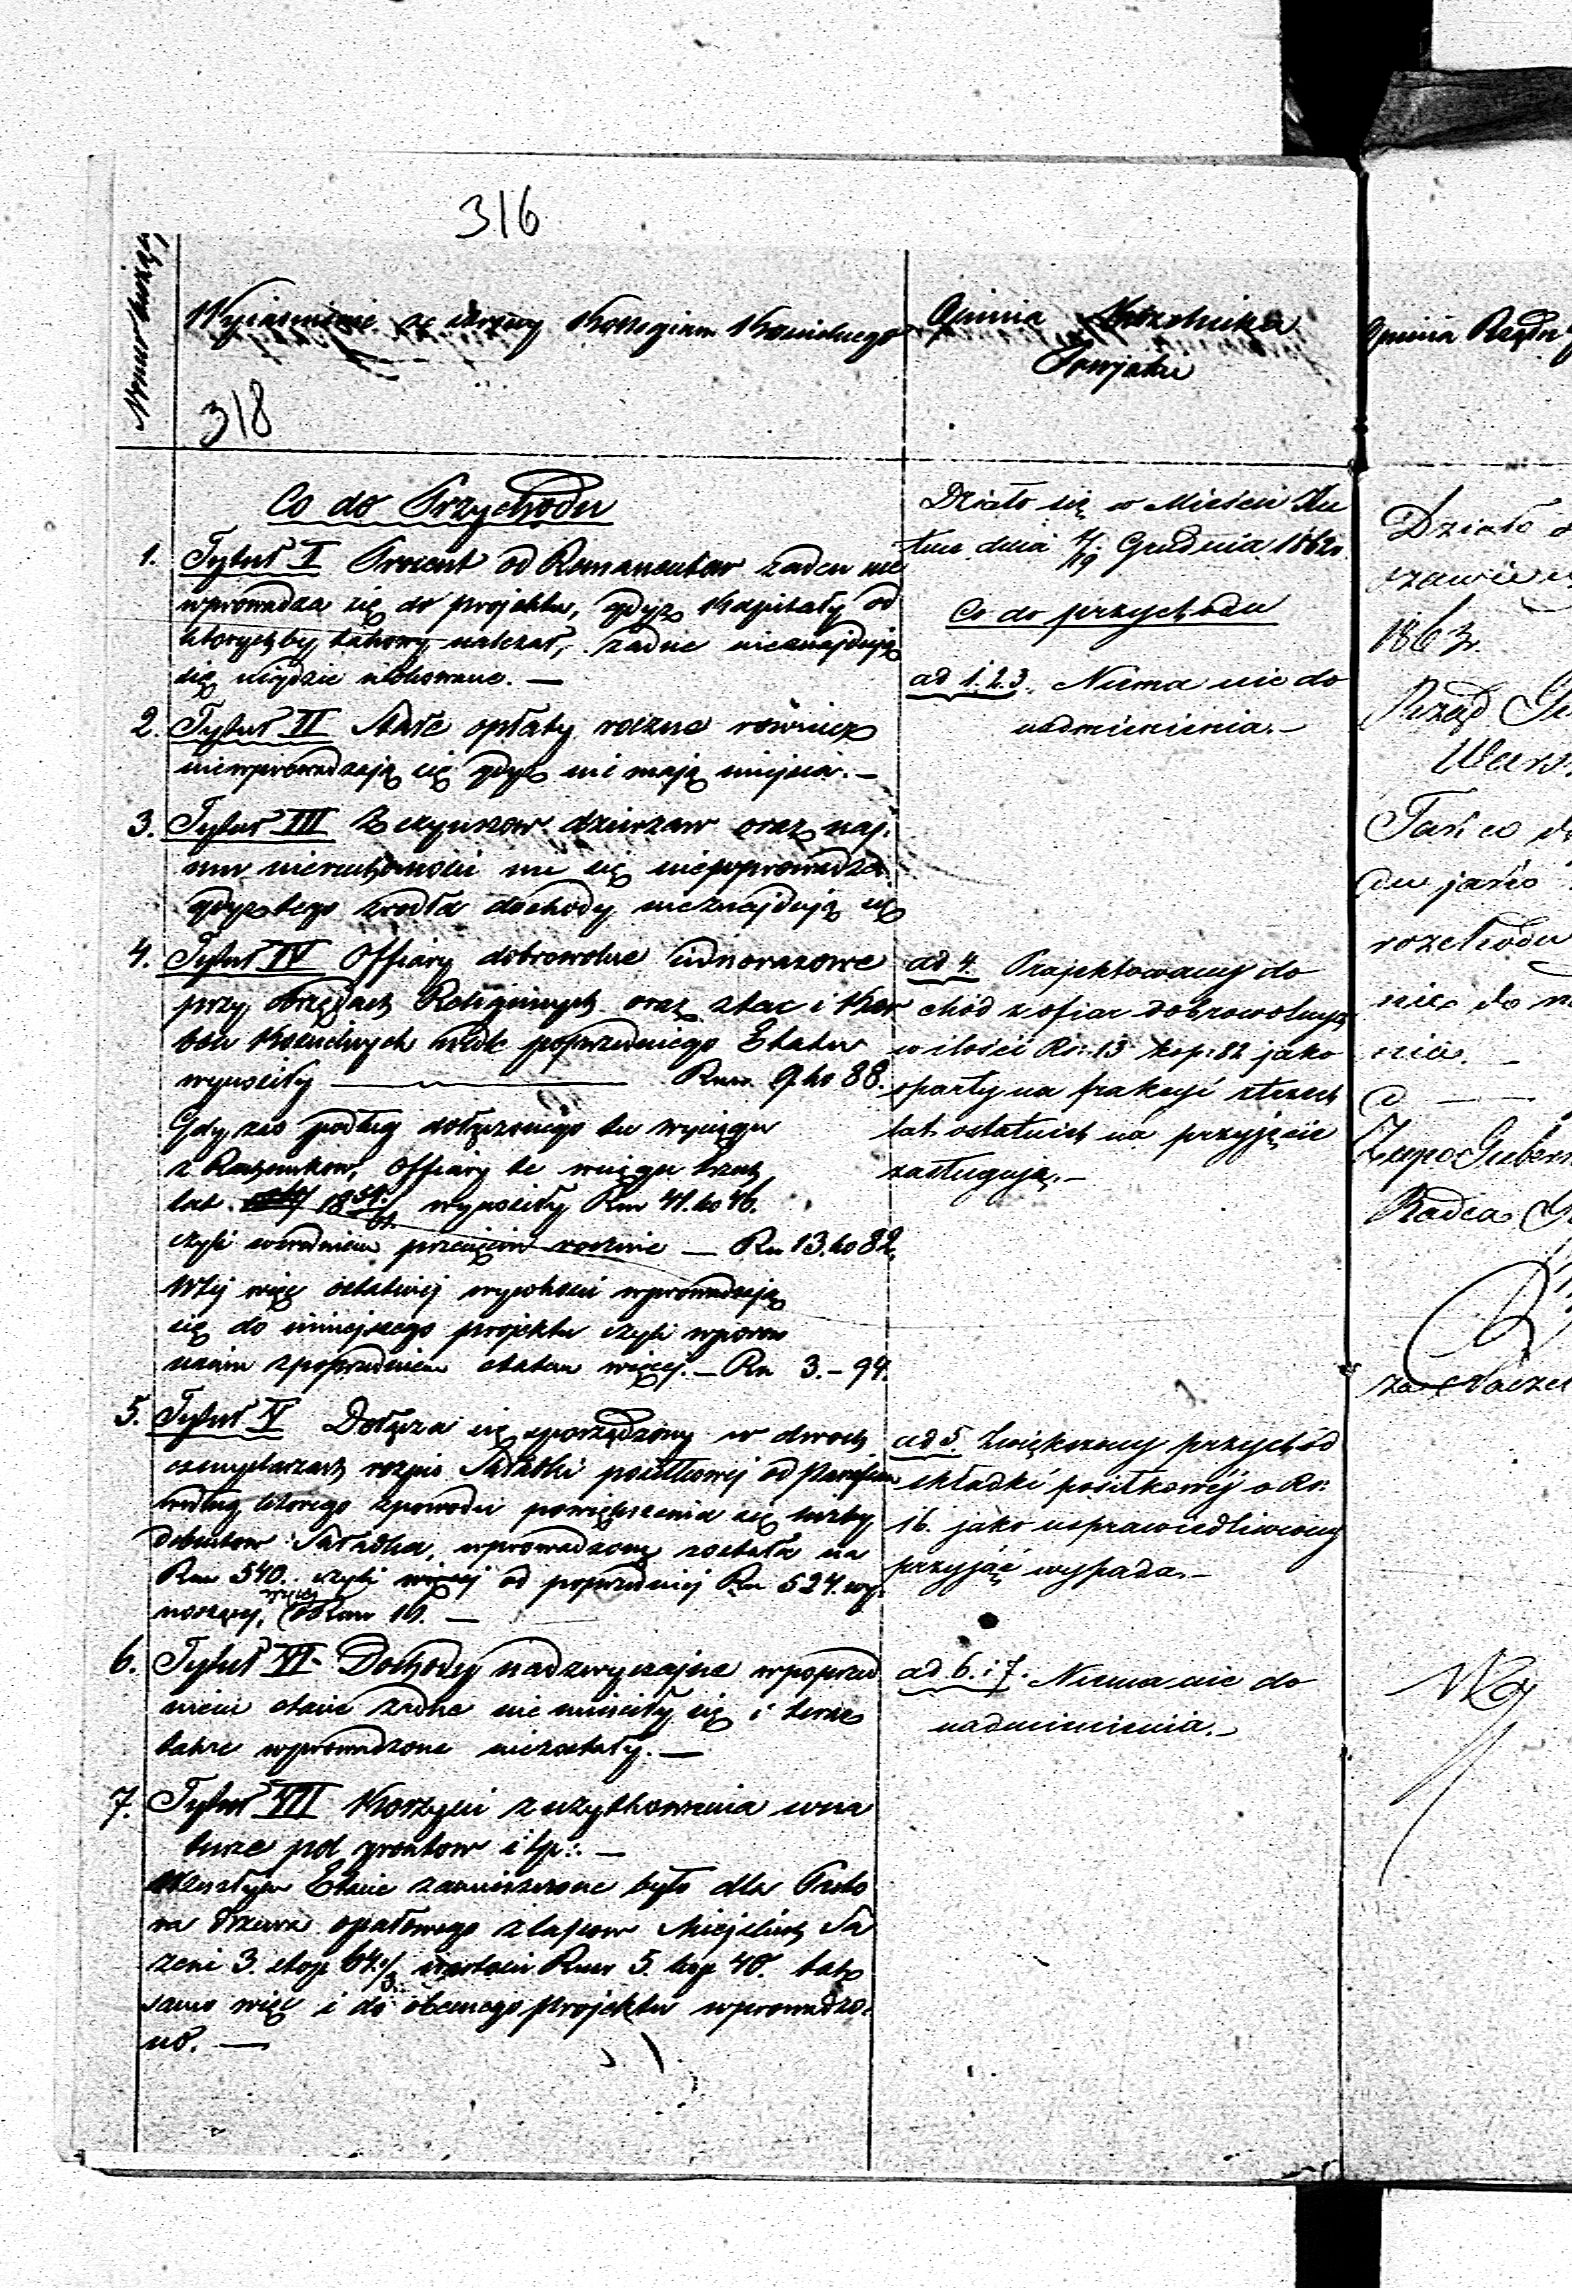 316
Numer bieżący
Wyjaśnienie ze strony Kollegium Kościelnego
318
Co do Przychodu
1. Tytuł I Procent od Remanentow żaden nie
wprowadza się do projektu, gdyż Kapitały od
ktorychby takowy należał, żadne nieznajdują
się nigdzie ulokowane. —
2. Tytuł II Stałe opłaty roczne rownież
niewprowadzają się gdyż nie mają miejsca. —
3. Tytuł III Z czynszow dzierzaw oraz naj-
mu nieruchomości nic się niewprowadza
gdyż tego zrodła dochody nieznajdują się
4. Tytuł IV Offiary dobrowolne iednorazowe
przy obrzędach Religijnych oraz z tac i Kar
bon Kościelnych wedle poprzedniego Etatu
wynosiły — Rsr. 9. ko 88.
Gdy zaś podług dołączonego tu wyciągu
z Rachunkow, Offiary te wciągu trzech
lat 1859/61 wynosiły Rsr 41. ko 46.
czyli w srednim przecięciu rocznie — Rsr 13. ko 82,
Wtej więc ostatniej wysokości wprowadzają
się do niniejszego projektu czyli wporow
naniu z poprzedniem etatem więcej. — Rsr 3. – 94.
5. Tytuł V Dołącza się sporządzony w dwoch
exemplarzach rozpis Składki posiłkowej od Parafian
według ktorego zpowodu powiększenia się liczby
debentow Składka, wprowadzoną została na
Rsr 540. czyli od poprzedniej Rsr 524. wy-
noszącej, więcej o Rsr 16. —
6. Tytuł VI – Dochody nadzwyczajne wpoprzed
niem etacie żadne nie mieściły się i teraz
także wprowadzone niezostały. —
7. Tytuł VII Korzyści z użytkowania wna
turze pol gruntow i t.p: —
Wzeszłym Etacie zamieszczone było dla Probo
drzewa opałowego z lasow Miejskich Są
żeni 3. stop 64 1/3 wartości Rsr 5. kop 40. toż
samo więc i do obecnego projektu wprowadzo-
no. —
Opinia Naczelnika
Powiatu
Działo się w Mieście Ku
tnie dnia 7/19 Grudnia 1862 r.
Co do przychodu
ad 1. 2. 3. Niema nic do
nadmienienia. —
ad 4. Projektowany do
chód z ofiar dobrowolnych
w ilości Rs: 13 kop: 82 jako
oparty na frakcyi z trzech
lat ostatnich na przyjęcie
zasługuje. —
ad 5. Zwiększony przychód
składki posiłkowéj o Rs:
16. jako usprawiedliwiony
przyjąć wypada. —
ad 6. i 7. Niema nic do
nadmienienia. —
Opinia Rządu
Działo
1863 r.
Rząd Gu
Wars
rozchodu
nic do n
nia. —
Radca
za Naczel